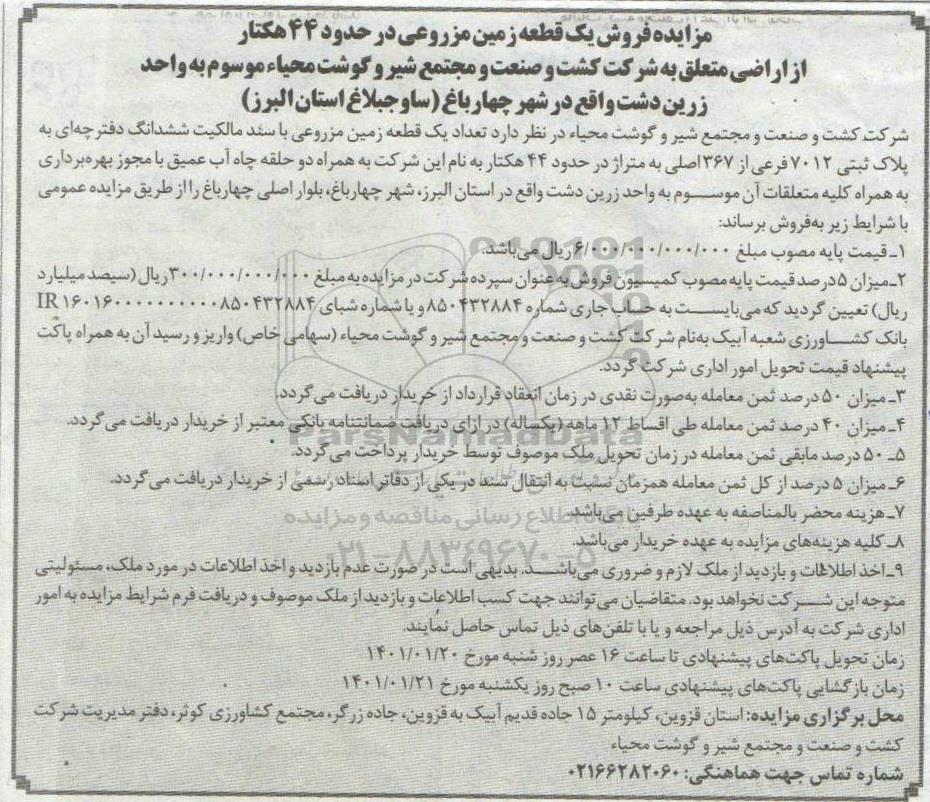 مزایده فروش یک قطعه زمین مزروعی در حدود ۴۴ هکتار
از اراضی متعلق به شرکت کشت و صنعت و مجتمع شیر و گوشت محیاء موسوم به واحد
زرین دشت واقع در شهر چهارباغ (ساوجبلاغ استان البرز)
شرکت کشت و صنعت و مجتمع شیر و گوشت محیاء در نظر دارد تعداد یک قطعه زمین مزروعی با سند مالکیت ششدانگ دفترچه‌ای به
پلاک ثبتی ۷۰۱۲ فرعی از ۳۶۷ اصلی به متراژ در حدود ۴۴ هکتار به نام این شرکت به همراه دو حلقه چاه آب عمیق با مجوز بهره‌برداری
به همراه کلیه متعلقات آن موسوم به واحد زرین دشت واقع در استان البرز، شهر چهارباغ، بلوار اصلی چهارباغ را از طریق مزایده عمومی
با شرایط زیر به‌فروش برساند:
۱ـ قیمت پایه مصوب مبلغ ۶/۰۰۰/۰۰۰/۰۰۰/۰۰۰ ریال می‌باشد.
۲ـ میزان ۵ درصد قیمت پایه مصوب کمیسیون فروش به عنوان سپرده شرکت در مزایده به مبلغ ۳۰۰/۰۰۰/۰۰۰/۰۰۰ ریال (سیصد میلیارد
ریال) تعیین گردید که می‌بایست به حساب جاری شماره ۸۵۰۴۳۲۸۸۴ و یا شماره شبای IR ۱۶۰۱۶۰۰۰۰۰۰۰۰۰۰۸۵۰۴۳۲۸۸۴
بانک کشاورزی شعبه آبیک به‌نام شرکت کشت و صنعت و مجتمع شیر و گوشت محیاء (سهامی خاص) واریز و رسید آن به همراه پاکت
پیشنهاد قیمت تحویل امور اداری شرکت گردد.
۳ـ میزان ۵۰ درصد ثمن معامله به‌صورت نقدی در زمان انعقاد قرارداد از خریدار دریافت می‌گردد.
۴ـ میزان ۴۰ درصد ثمن معامله طی اقساط ۱۲ ماهه (یکساله) در ازای دریافت ضمانتنامه بانکی معتبر از خریدار دریافت می‌گردد.
۵ـ ۵۰ درصد مابقی ثمن معامله در زمان تحویل ملک موصوف توسط خریدار پرداخت می‌گردد.
۶ـ میزان ۵ درصد از کل ثمن معامله همزمان نسبت به انتقال سند در یکی از دفاتر اسناد رسمی از خریدار دریافت می‌گردد.
۷ـ هزینه محضر بالمناصفه به عهده طرفین می‌باشد.
۸ـ کلیه هزینه‌های مزایده به عهده خریدار می‌باشد.
۹ـ اخذ اطلاعات و بازدید از ملک لازم و ضروری می‌باشد. بدیهی است در صورت عدم بازدید و اخذ اطلاعات در مورد ملک، مسئولیتی
متوجه این شرکت نخواهد بود. متقاضیان می‌توانند جهت کسب اطلاعات و بازدید از ملک موصوف و دریافت فرم شرایط مزایده به امور
اداری شرکت به آدرس ذیل مراجعه و یا با تلفن‌های ذیل تماس حاصل نمایند.
زمان تحویل پاکت‌های پیشنهادی تا ساعت ۱۶ عصر روز شنبه مورخ ۱۴۰۱/۰۱/۲۰
زمان بازگشایی پاکت‌های پیشنهادی ساعت ۱۰ صبح روز یکشنبه مورخ ۱۴۰۱/۰۱/۲۱
محل برگزاری مزایده: استان قزوین، کیلومتر ۱۵ جاده قدیم آبیک به قزوین، جاده زرگر، مجتمع کشاورزی کوثر، دفتر مدیریت شرکت
کشت و صنعت و مجتمع شیر و گوشت محیاء
شماره تماس جهت هماهنگی: ۰۲۱۶۶۲۸۲۰۶۰
ParsNamadData
اطلاع رسانی مناقصه و مزایده
۰۲۱-۸۸۳۴۹۶۷۰-۵